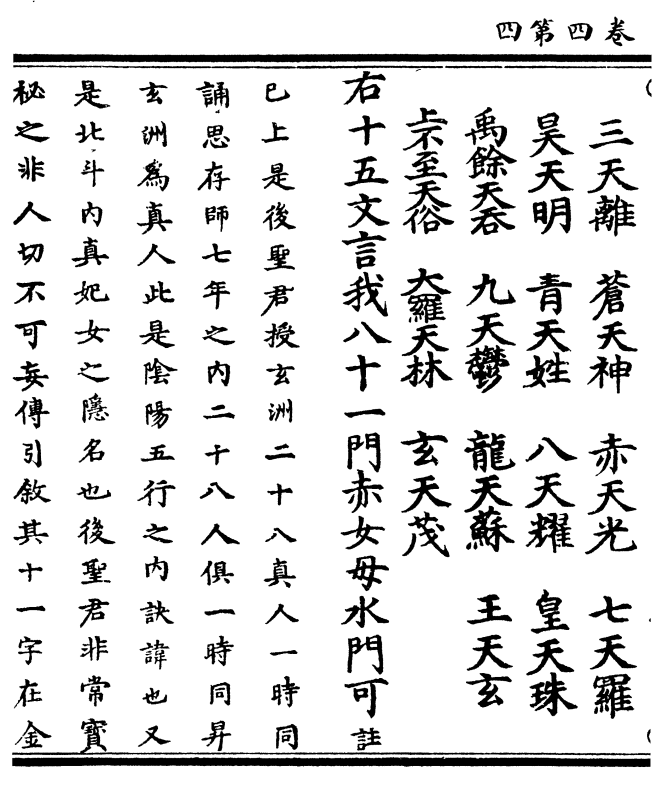 卷四第四
三天離　蒼天神　赤天光　七天羅
昊天明　青天姓　八天耀　皇天珠
禹餘天吞　九天鬱　龍天蘇　王天玄
上不至天俗　大羅天林　玄天茂
右十五文言我八十一門赤女毋水門可註
已上是後聖君授玄洲二十八真人一時同
誦思存師七年之內二十八人俱一時同昇
玄洲為真人此是陰陽五行之內訣諱也又
是北斗內真妃女之隱名也後聖君非常寳
秘之非人切不可妄傳引敘其十一字在金